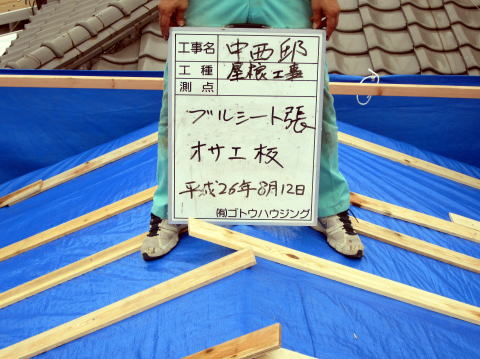 工事名 中西邸
工種 屋根工事
測点
ブルシート張
オサエ板
平成26年8月12日
(有)ゴトウハウジング